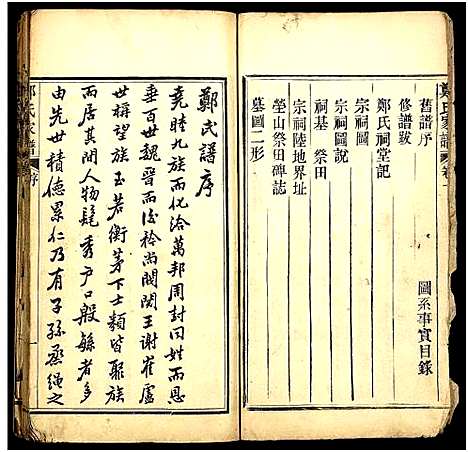 鄭氏家譜 卷一
圖系事實目錄
舊譜序
修譜跋
鄭氏祠堂記
宗祠圖
宗祠圖說
宗祠陸地界址
祠基 祭田
塋山祭田碑誌
墓圖二形
鄭氏譜序
堯睦九族而化洽萬邦周封同姓而恩
者百世魏晉而後矜尚閥閱王謝崔盧
世稱望族玉若衡茅下士類皆聚族
而居其間人物髦秀戶口殷繁者多
由先世積德累仁乃有子孫丞繩之
鄭氏家譜 序